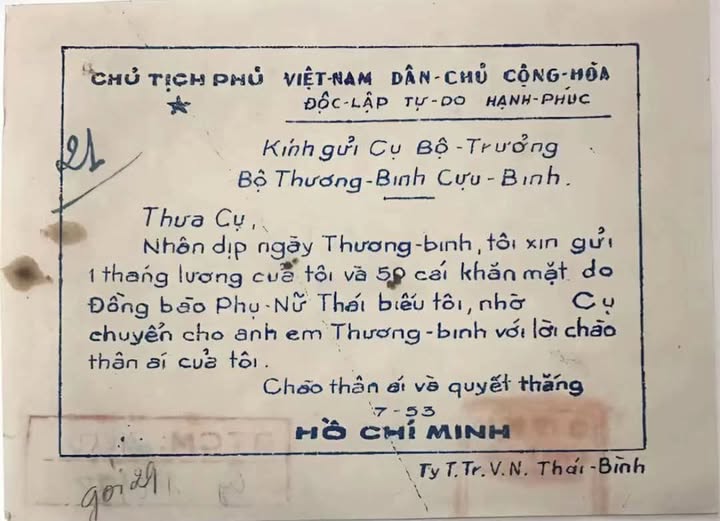 CHỦ TỊCH PHỦ VIỆT-NAM DÂN-CHỦ CỘNG-HÒA
ĐỘC-LẬP TỰ-DO HẠNH-PHÚC
21
Kính gửi Cụ Bộ-Trưởng
Bộ Thương-Binh Cựu-Binh.
Thưa Cụ,
Nhân dịp ngày Thương-binh, tôi xin gửi
1 tháng lương của tôi và 50 cái khăn mặt do
Đồng bào Phụ-Nữ Thái biếu tôi, nhờ Cụ
chuyển cho anh em Thương-binh với lời chào
thân ái của tôi.
Chào thân ái và quyết thắng
7-53
HỒ CHÍ MINH
Ty T.Tr.V.N. Thái-Bình